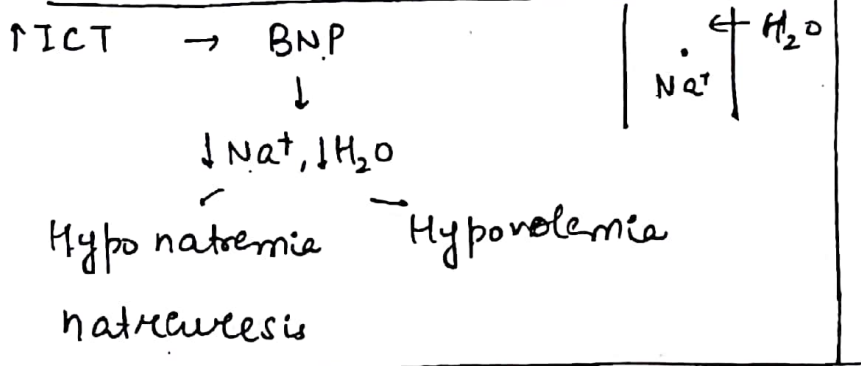 ↑ICT → BNP
← H₂O
Na⁺
↓
↓Na⁺, ↓H₂O
Hyponatremia Hypovolemia
natreuresis